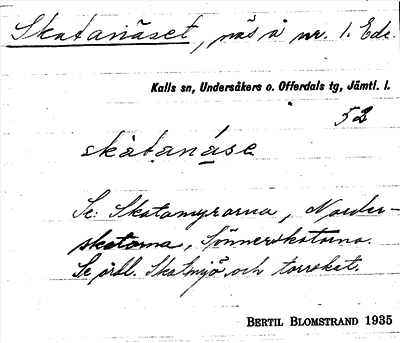 Skatanäset, näs å nr. 1. Ede.
Kalls sn, Undersåkers o. Offerdals tg, Jämtl. l.
52
skàtanáse
Se: Skatamyrarna, Norder-
skatorna, Sönnerskatorna.
Se ordl. Skatmyö och torrskat.
BERTIL BLOMSTRAND 1935